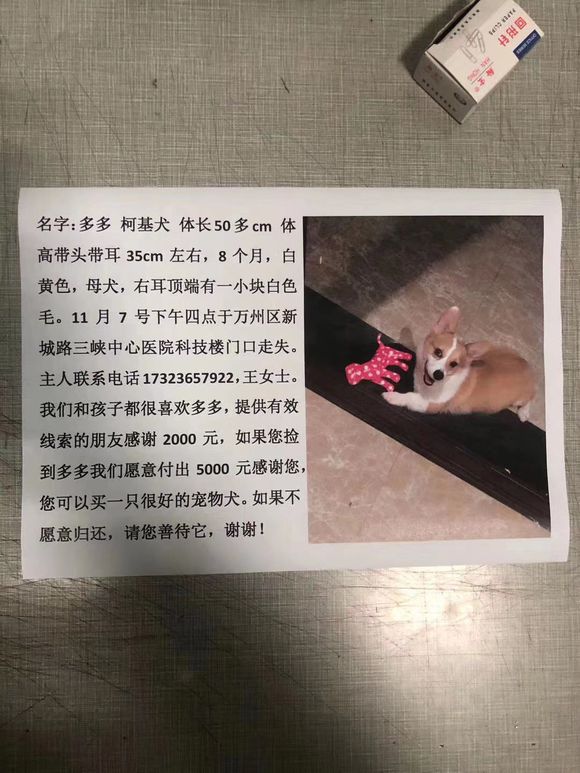 名字：多多 柯基犬 体长50多cm 体
高带头带耳 35cm 左右，8 个月，白
黄色，母犬，右耳顶端有一小块白色
毛。11 月 7 号下午四点于万州区新
城路三峡中心医院科技楼门口走失。
主人联系电话17323657922，王女士。
我们和孩子都很喜欢多多，提供有效
线索的朋友感谢 2000 元，如果您捡
到多多我们愿意付出 5000 元感谢您，
您可以买一只很好的宠物犬。如果不
愿意归还，请您善待它，谢谢！
回形针
PAPER CLIPS